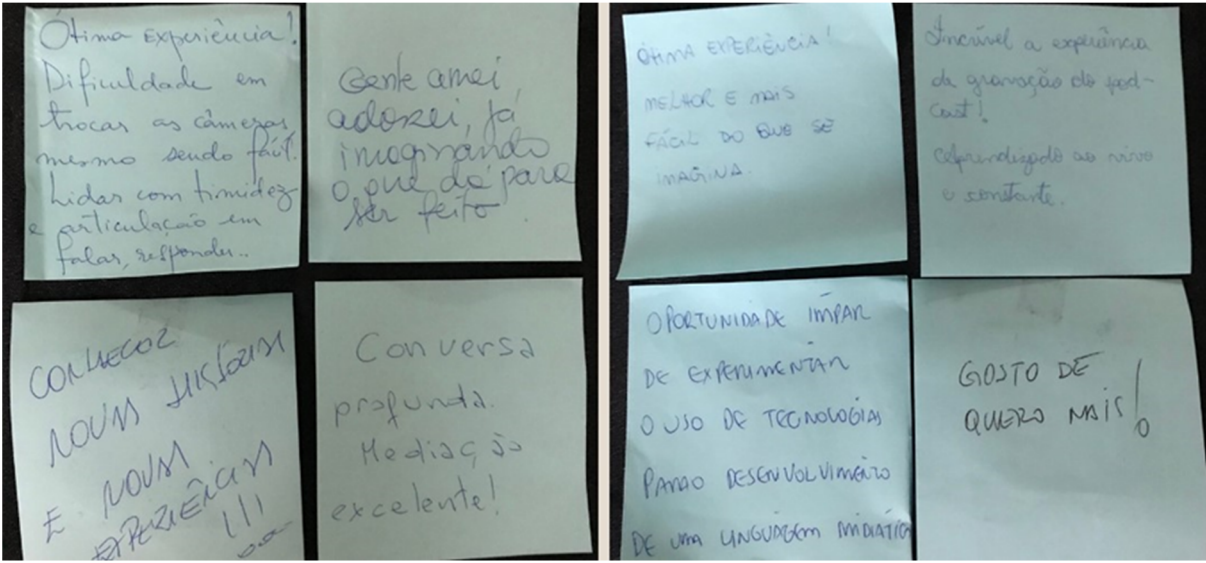 Ótima Experiência!
Dificuldade em
trocar as câmeras,
mesmo sendo fácil.
Lidar com timidez
e articulação em
falar, responder..
Gente amei
adorei, já
imaginando
o que dá para
ser feito
CONHECER
NOVAS HISTÓRIAS
E NOVAS
EXPERIÊNCIAS
!!!
Conversa
profunda.
Mediação
excelente!
ÓTIMA EXPERIÊNCIA!
MELHOR E MAIS
FÁCIL DO QUE SE
IMAGINA.
Incrível a experiência
da gravação do pod-
cast!
Aprendizado ao vivo
e constante.
OPORTUNIDADE ÍMPAR
DE EXPERIMENTAR
O USO DE TECNOLOGIAS
PARAO DESENVOLVIMENTO
DE UMA LINGUAGEM MIDIÁTICA
GOSTO DE
QUERO MAIS!